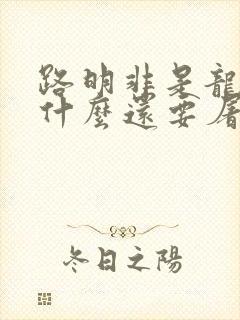 路明非是龍
什麼還要屠
冬日之陽